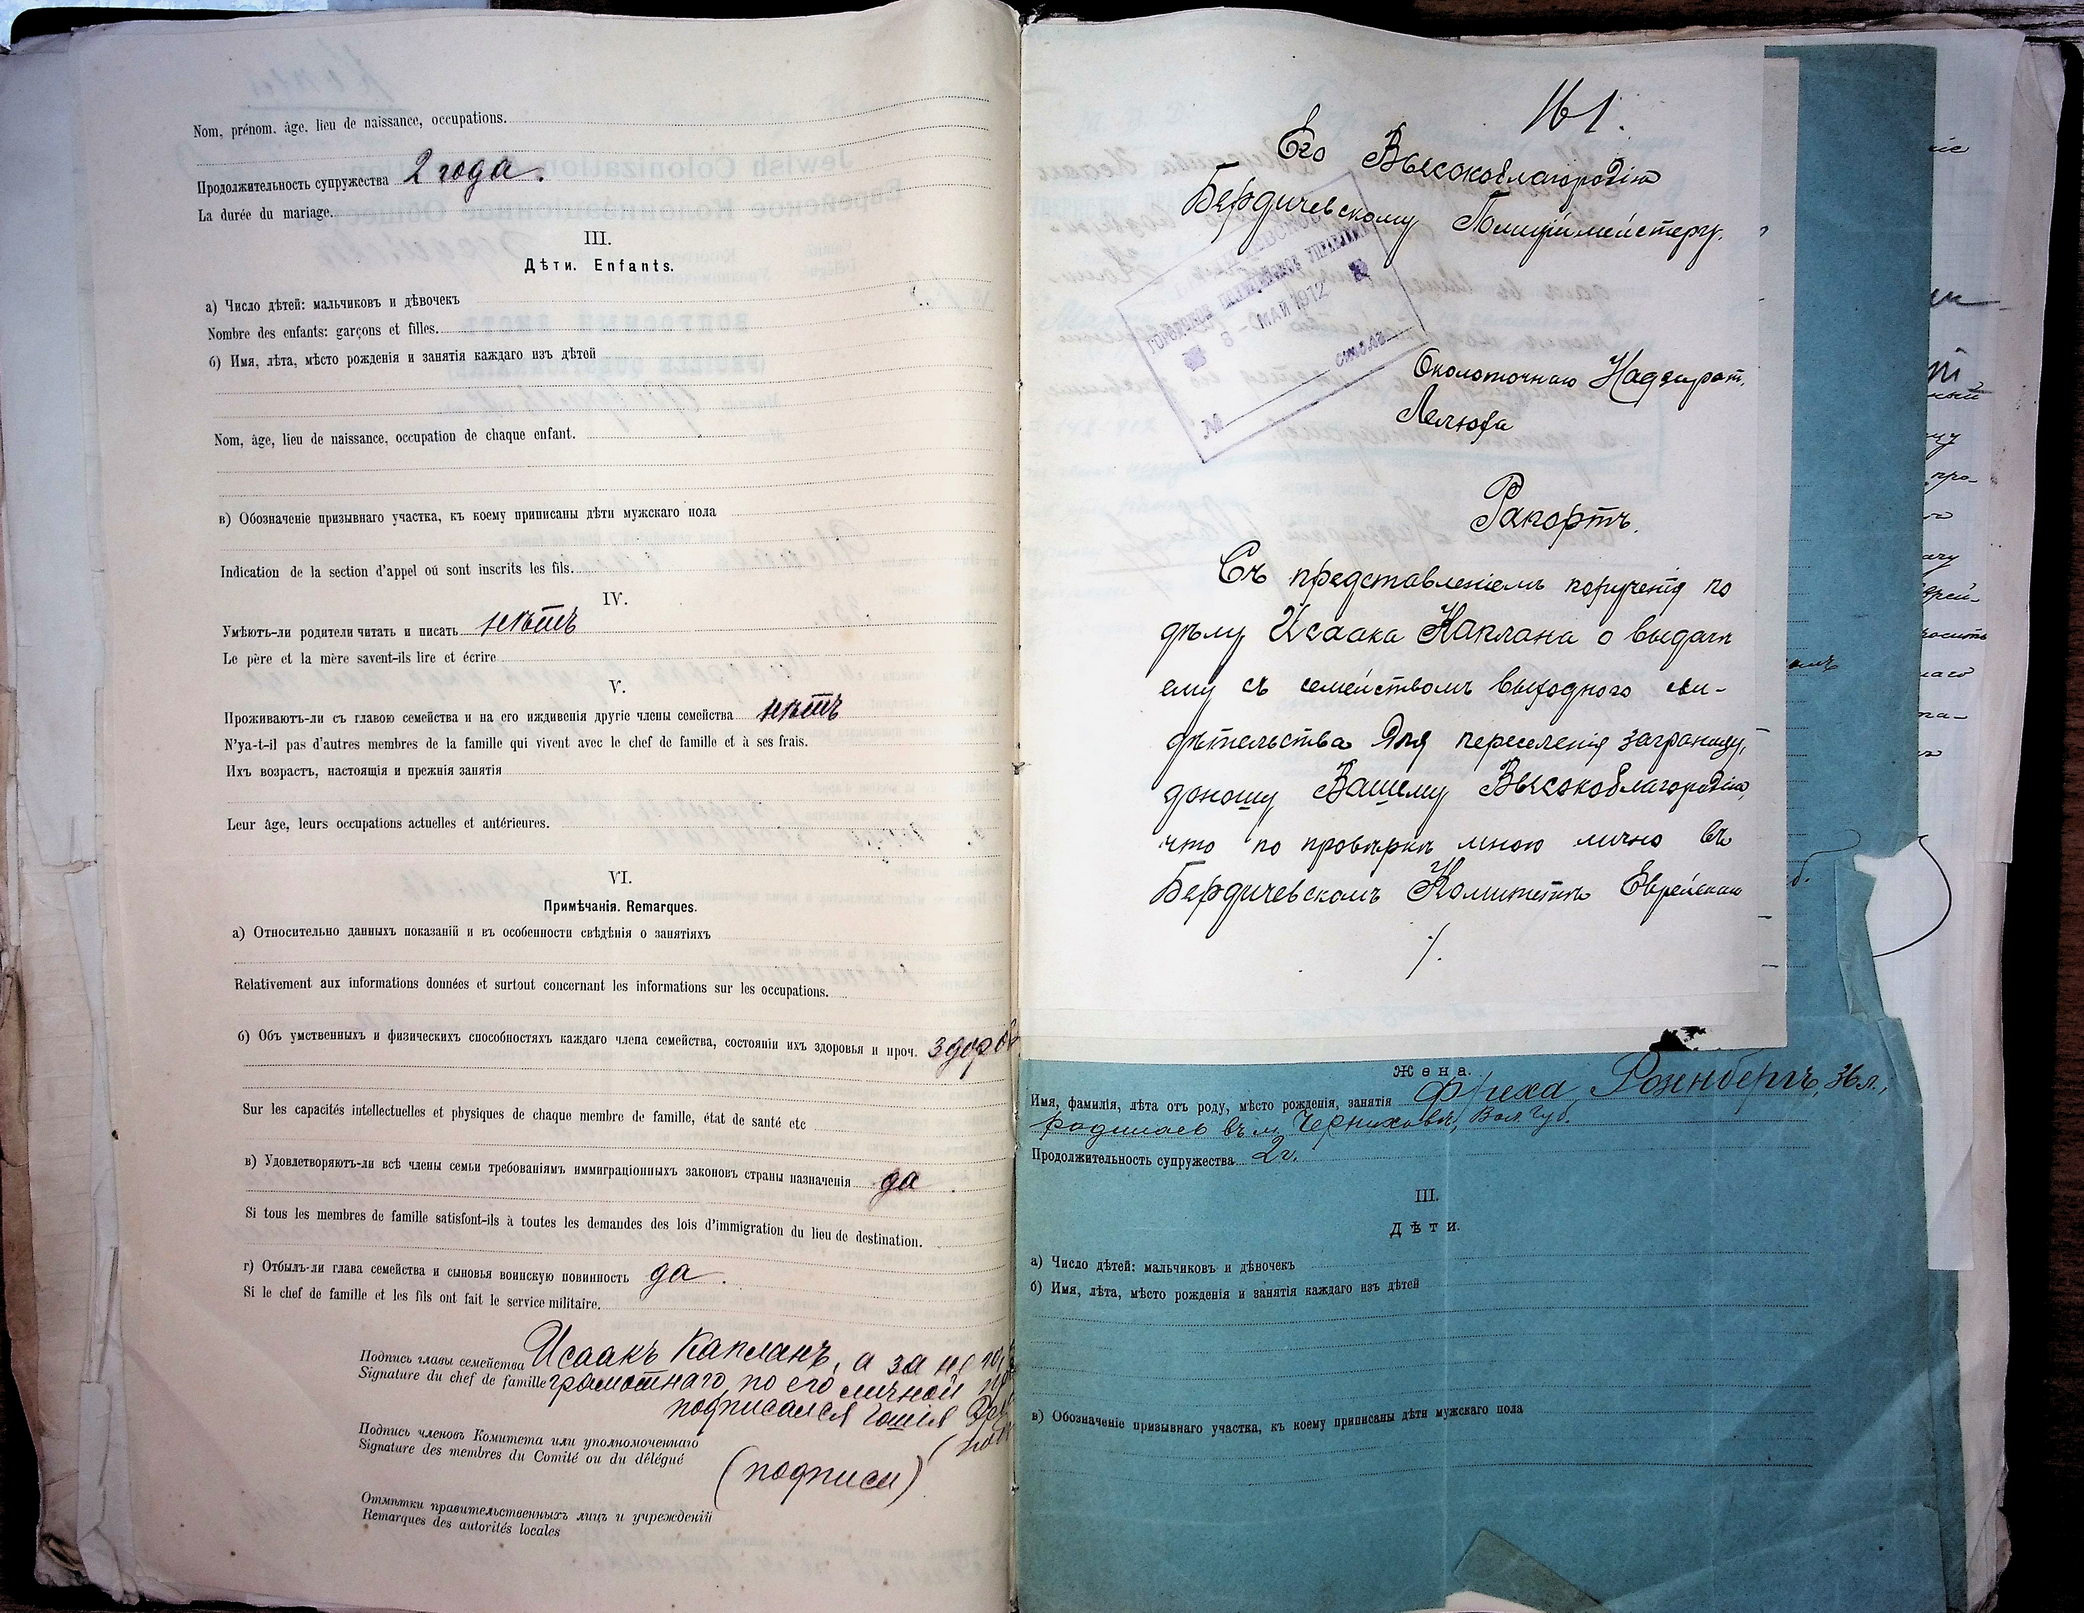 Nom, prénom, âge, lieu de naissance, occupations.
Продолжительность супружества 2 года.
La durée du mariage.
III.
Дѣти. Enfants.
а) Число дѣтей: мальчиковъ и дѣвочекъ
Nombre des enfants: garçons et filles.
б) Имя, лѣта, мѣсто рожденія и занятія каждаго изъ дѣтей
Nom, âge, lieu de naissance, occupation de chaque enfant.
в) Обозначеніе призывнаго участка, къ коему приписаны дѣти мужскаго пола
Indication de la section d'appel oú sont inscrits les fils.
IV.
Умѣютъ-ли родители читать и писать нѣтъ
Le père et la mère savent-ils lire et écrire
V.
Проживаютъ-ли съ главою семейства и на его иждивенія другіе члены семейства нѣтъ
N'ya-t-il pas d'autres membres de la famille qui vivent avec le chef de famille et à ses frais.
Ихъ возрастъ, настоящія и прежнія занятія
Leur âge, leurs occupations actuelles et antérieures.
VI.
Примѣчанія. Remarques.
а) Относительно данныхъ показаній и въ особенности свѣдѣнія о занятіяхъ
Relativement aux informations données et surtout concernant les informations sur les occupations.
б) Объ умственныхъ и физическихъ способностяхъ каждаго члена семейства, состояніи ихъ здоровья и проч. здоровы
Sur les capacités intellectuelles et physiques de chaque membre de famille, état de santé etc
в) Удовлетворяютъ-ли всѣ члены семьи требованіямъ иммиграціонныхъ законовъ страны назначенія да
Si tous les membres de famille satisfont-ils à toutes les demandes des lois d'immigration du lieu de destination.
г) Отбылъ-ли глава семейства и сыновья воинскую повинность да.
Si le chef de famille et les fils ont fait le service militaire.
Подпись главы семейства Исаакъ Капланъ, а за не
Signature du chef de famille грамотнаго, по его личной
подписался
Подпись членовъ Комитета или уполномоченнаго
Signature des membres du Comité ou du délégué
(подписи)
Отмѣтки правительственныхъ лицъ и учрежденій
Remarques des autorités locales
161.
Его Высокоблагородію
Бердичевскому Полиціймейстеру.
ГОРОДСКОЕ ПОЛИЦЕЙСКОЕ УПРАВЛЕНІЕ
МАЙ 1912
столъ
№
Околоточнаго Надзират.
Рапортъ.
Съ представленіемъ порученія по
дѣлу Исаака Каплана о выдачѣ
ему съ семействомъ выходного сви-
дѣтельства для переселенія заграницу,
доношу Вашему Высокоблагородію,
что по провѣркѣ мною лично въ
Бердичевскомъ Комитетѣ Еврейскаго
./.
Жена.
Имя, фамилія, лѣта отъ роду, мѣсто рожденія, занятія Фриха 36 л.,
родилась въ м. Черняховѣ, Вол. Губ.
Продолжительность супружества 2 г.
III.
Дѣти.
а) Число дѣтей: мальчиковъ и дѣвочекъ
б) Имя, лѣта, мѣсто рожденія и занятія каждаго изъ дѣтей
в) Обозначеніе призывнаго участка, къ коему приписаны дѣти мужскаго пола